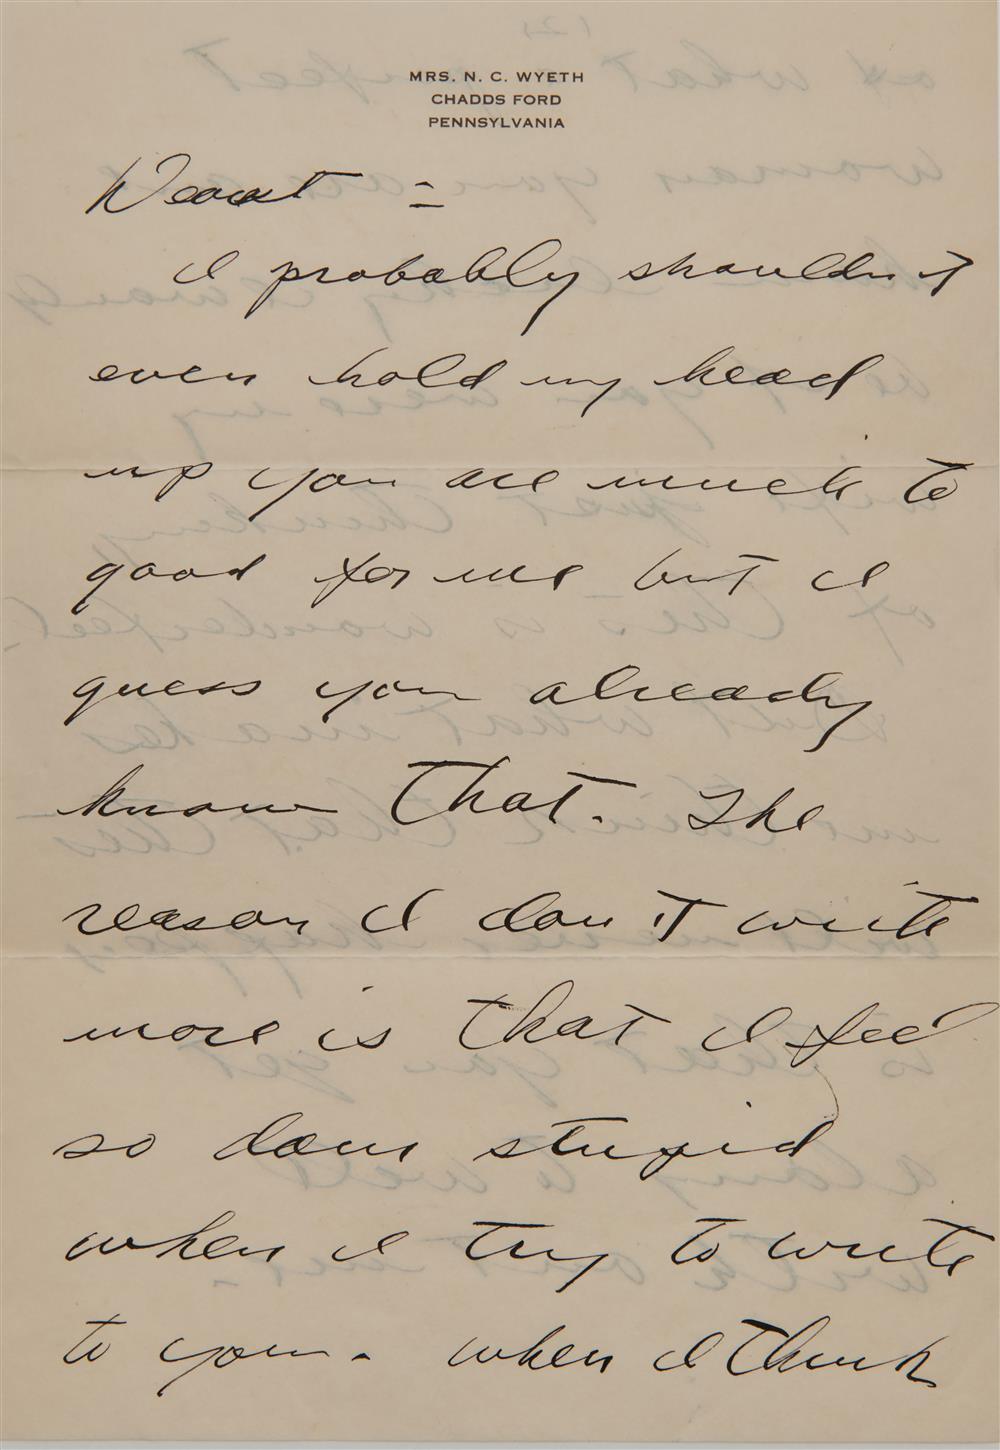 MRS. N. C. WYETH
CHADDS FORD
PENNSYLVANIA
Dearest =
I probably shouldn't
even hold my head
up you are much to
good for me but I
guess you already
know that. The
reason I don't write
more is that I feel
so dam stupid
when I try to write
to you. when I think